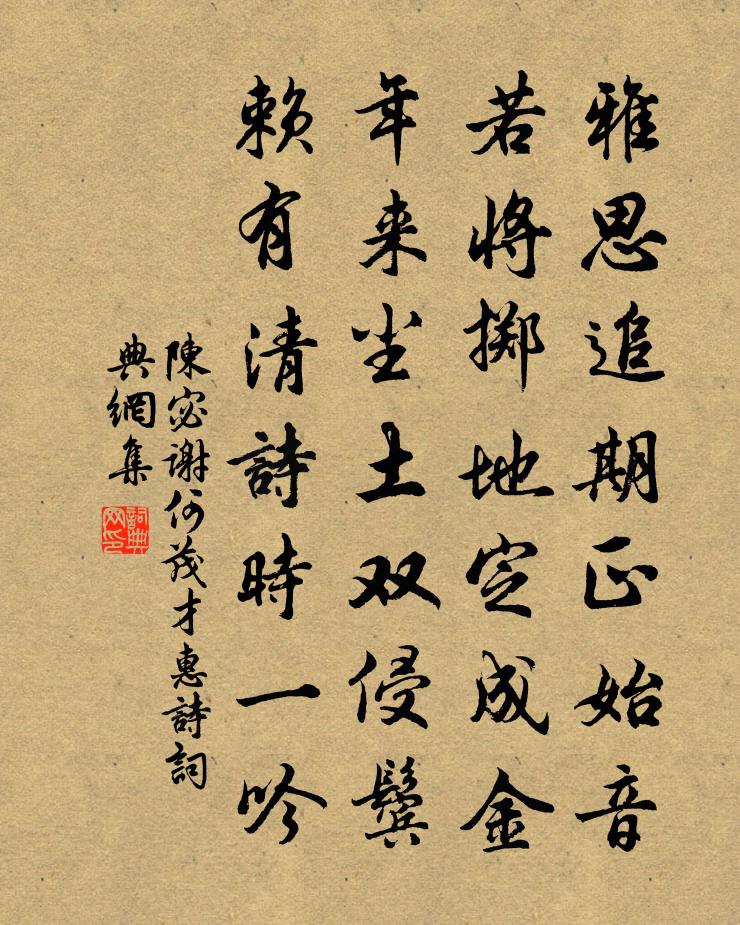 雅思追期正始音
若将掷地定成金
年来尘土双侵鬓
赖有清詩時一吟
陳宓谢何茂才惠詩詞
典網集
詞典
网印